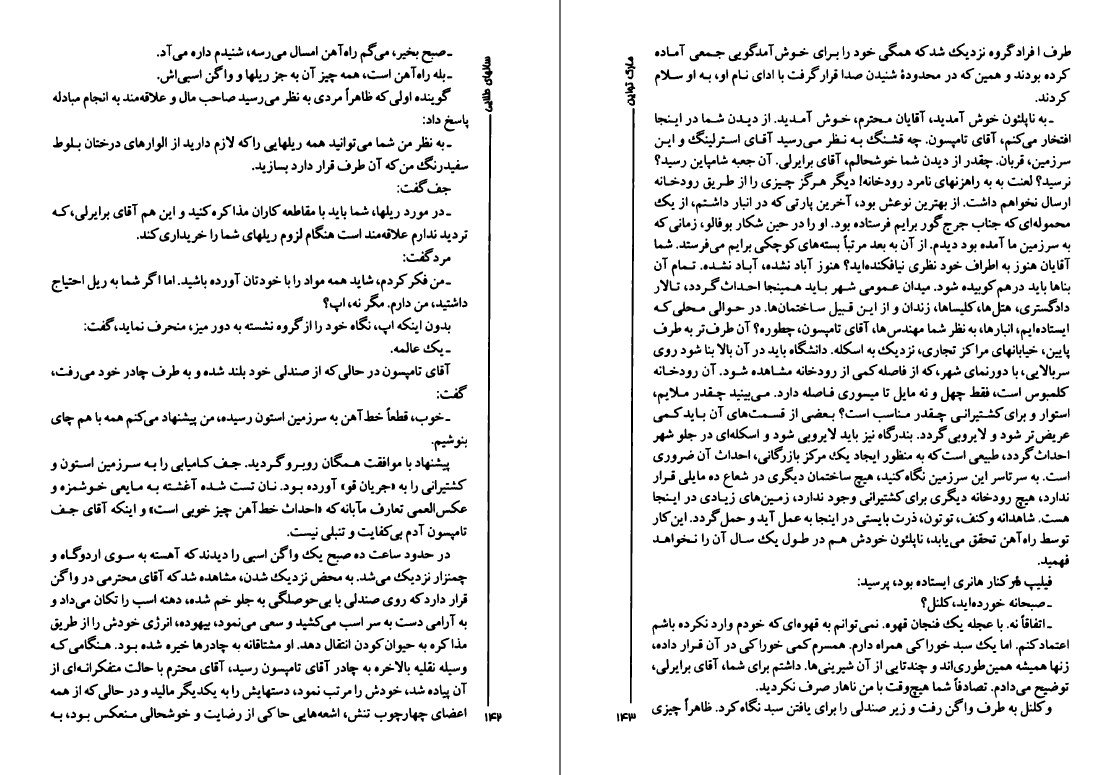 سالهای طلایی
ـ صبح بخیر، می‌گم راه‌آهن امسال می‌رسه، شنیدم داره می‌آد.
ـ بله راه‌آهن است، همه چیز آن به جز ریلها و واگن اسبی‌اش.
گوینده اولی که ظاهراً مردی به نظر می‌رسید صاحب مال و علاقه‌مند به انجام مبادله
پاسخ داد:
ـ به نظر من شما می‌توانید همه ریلهایی را که لازم دارید از الوارهای درختان بلوط
سفیدرنگ من که آن طرف قرار دارد بسازید.
جف گفت:
ـ در مورد ریلها، شما باید با مقاطعه کاران مذاکره کنید و این هم آقای برایرلی، که
تردید ندارم علاقه‌مند است هنگام لزوم ریلهای شما را خریداری کند.
مرد گفت:
ـ من فکر کردم، شاید همه مواد را با خودتان آورده باشید. اما اگر شما به ریل احتیاج
داشتید، من دارم. مگر نه، اپ؟
بدون اینکه اپ، نگاه خود را از گروه نشسته به دور میز، منحرف نماید، گفت:
ـ یک عالمه.
آقای تامپسون در حالی که از صندلی خود بلند شده و به طرف چادر خود می‌رفت،
گفت:
ـ خوب، قطعاً خط آهن به سرزمین استون رسیده، من پیشنهاد می‌کنم همه با هم چای
بنوشیم.
پیشنهاد با موافقت همگان روبرو گردید. جف کامیابی را به سرزمین استون و
کشتیرانی را به «جریان قو» آورده بود. نان تست شده آغشته به مایعی خوشمزه و
عکس‌العمی تعارف مآبانه که «احداث خط آهن چیز خوبی است» و اینکه آقای جف
تامپسون آدم بی‌کفایت و تنبلی نیست.
در حدود ساعت ده صبح یک واگن اسبی را دیدند که آهسته به سوی اردوگاه و
چمنزار نزدیک می‌شد. به محض نزدیک شدن، مشاهده شد که آقای محترمی در واگن
قرار دارد که روی صندلی با بی‌حوصلگی به جلو خم شده، دهنه اسب را تکان می‌داد و
به آرامی دست به سر اسب می‌کشید و سعی می‌نمود، بیهوده، انرژی خودش را از طریق
مذاکره به حیوان کودن انتقال دهد. او مشتاقانه به چادرها خیره شده بود. هنگامی که
وسیله نقلیه بالاخره به چادر آقای تامپسون رسید، آقای محترم با حالت متفکرانه‌ای از
آن پیاده شد، خودش را مرتب نمود، دستهایش را به یکدیگر مالید و در حالی که از همه
اعضای چهارچوب تنش، اشعه‌هایی حاکی از رضایت و خوشحالی منعکس بود، به
۱۴۲
مارک تواین
طرف افراد گروه نزدیک شد که همگی خود را برای خوش‌آمدگویی جمعی آماده
کرده بودند و همین که در محدودهٔ شنیدن صدا قرار گرفت با ادای نام او، به او سلام
کردند.
ـ به ناپلئون خوش آمدید، آقایان محترم، خوش آمدید. از دیدن شما در اینجا
افتخار می‌کنم، آقای تامپسون. چه قشنگ به نظر می‌رسید آقای استرلینگ و این
سرزمین، قربان. چقدر از دیدن شما خوشحالم، آقای برایرلی. آن جعبه شامپاین رسید؟
نرسید؟ لعنت به به راهزنهای نامرد رودخانه! دیگر هرگز چیزی را از طریق رودخانه
ارسال نخواهم داشت. از بهترین نوعش بود، آخرین پارتی که در انبار داشتم، از یک
محموله‌ای که جناب جرج گور برایم فرستاده بود. او را در حین شکار بوفالو، زمانی که
به سرزمین ما آمده بود دیدم. از آن به بعد مرتباً بسته‌های کوچکی برایم می‌فرستد. شما
آقایان هنوز به اطراف خود نظری نیافکنده‌اید؟ هنوز آباد نشده، آباد نشده. تمام آن
بناها باید درهم کوبیده شود. میدان عمومی شهر باید همینجا احداث گردد، تالار
دادگستری، هتل‌ها، کلیساها، زندان و از این قبیل ساختمان‌ها. در حوالی محلی که
ایستاده‌ایم، انبارها، به نظر شما مهندس‌ها، آقای تامپسون، چطوره؟ آن طرف‌تر به طرف
پایین، خیابانهای مراکز تجاری، نزدیک به اسکله. دانشگاه باید در آن بالا بنا شود روی
سربالایی، با دورنمای شهر، که از فاصله کمی از رودخانه مشاهده شود. آن رودخانه
کلمبوس است، فقط چهل و نه مایل تا میسوری فاصله دارد. می‌بینید چقدر ملایم،
استوار و برای کشتیرانی چقدر مناسب است؟ بعضی از قسمت‌های آن باید کمی
عریض‌تر شود و لایروبی گردد. بندرگاه نیز باید لایروبی شود و اسکله‌ای در جلو شهر
احداث گردد، طبیعی است که به منظور ایجاد یک مرکز بازرگانی، احداث آن ضروری
است. به سرتاسر این سرزمین نگاه کنید، هیچ ساختمان دیگری در شعاع ده مایلی قرار
ندارد، هیچ رودخانه دیگری برای کشتیرانی وجود ندارد، زمین‌های زیادی در اینجا
هست. شاهدانه و کنف، توتون، ذرت بایستی در اینجا به عمل آید و حمل گردد. این کار
توسط راه‌آهن تحقق می‌یابد، ناپلئون خودش هم در طول یک سال آن را نخواهد
فهمید.
فیلیپ که کنار هانری ایستاده بود، پرسید:
ـ صبحانه خورده‌اید، کلنل؟
ـ اتفاقاً نه. با عجله یک فنجان قهوه. نمی‌توانم به قهوه‌ای که خودم وارد نکرده باشم
اعتماد کنم. اما یک سبد خوراکی همراه دارم. همسرم کمی خوراکی در آن قرار داده،
زنها همیشه همین‌طوری‌اند و چندتایی از آن شیرینی‌ها. داشتم برای شما، آقای برایرلی،
توضیح می‌دادم. تصادفاً شما هیچ‌وقت با من ناهار صرف نکردید.
و کلنل به طرف واگن رفت و زیر صندلی را برای یافتن سبد نگاه کرد. ظاهراً چیزی
۱۴۳